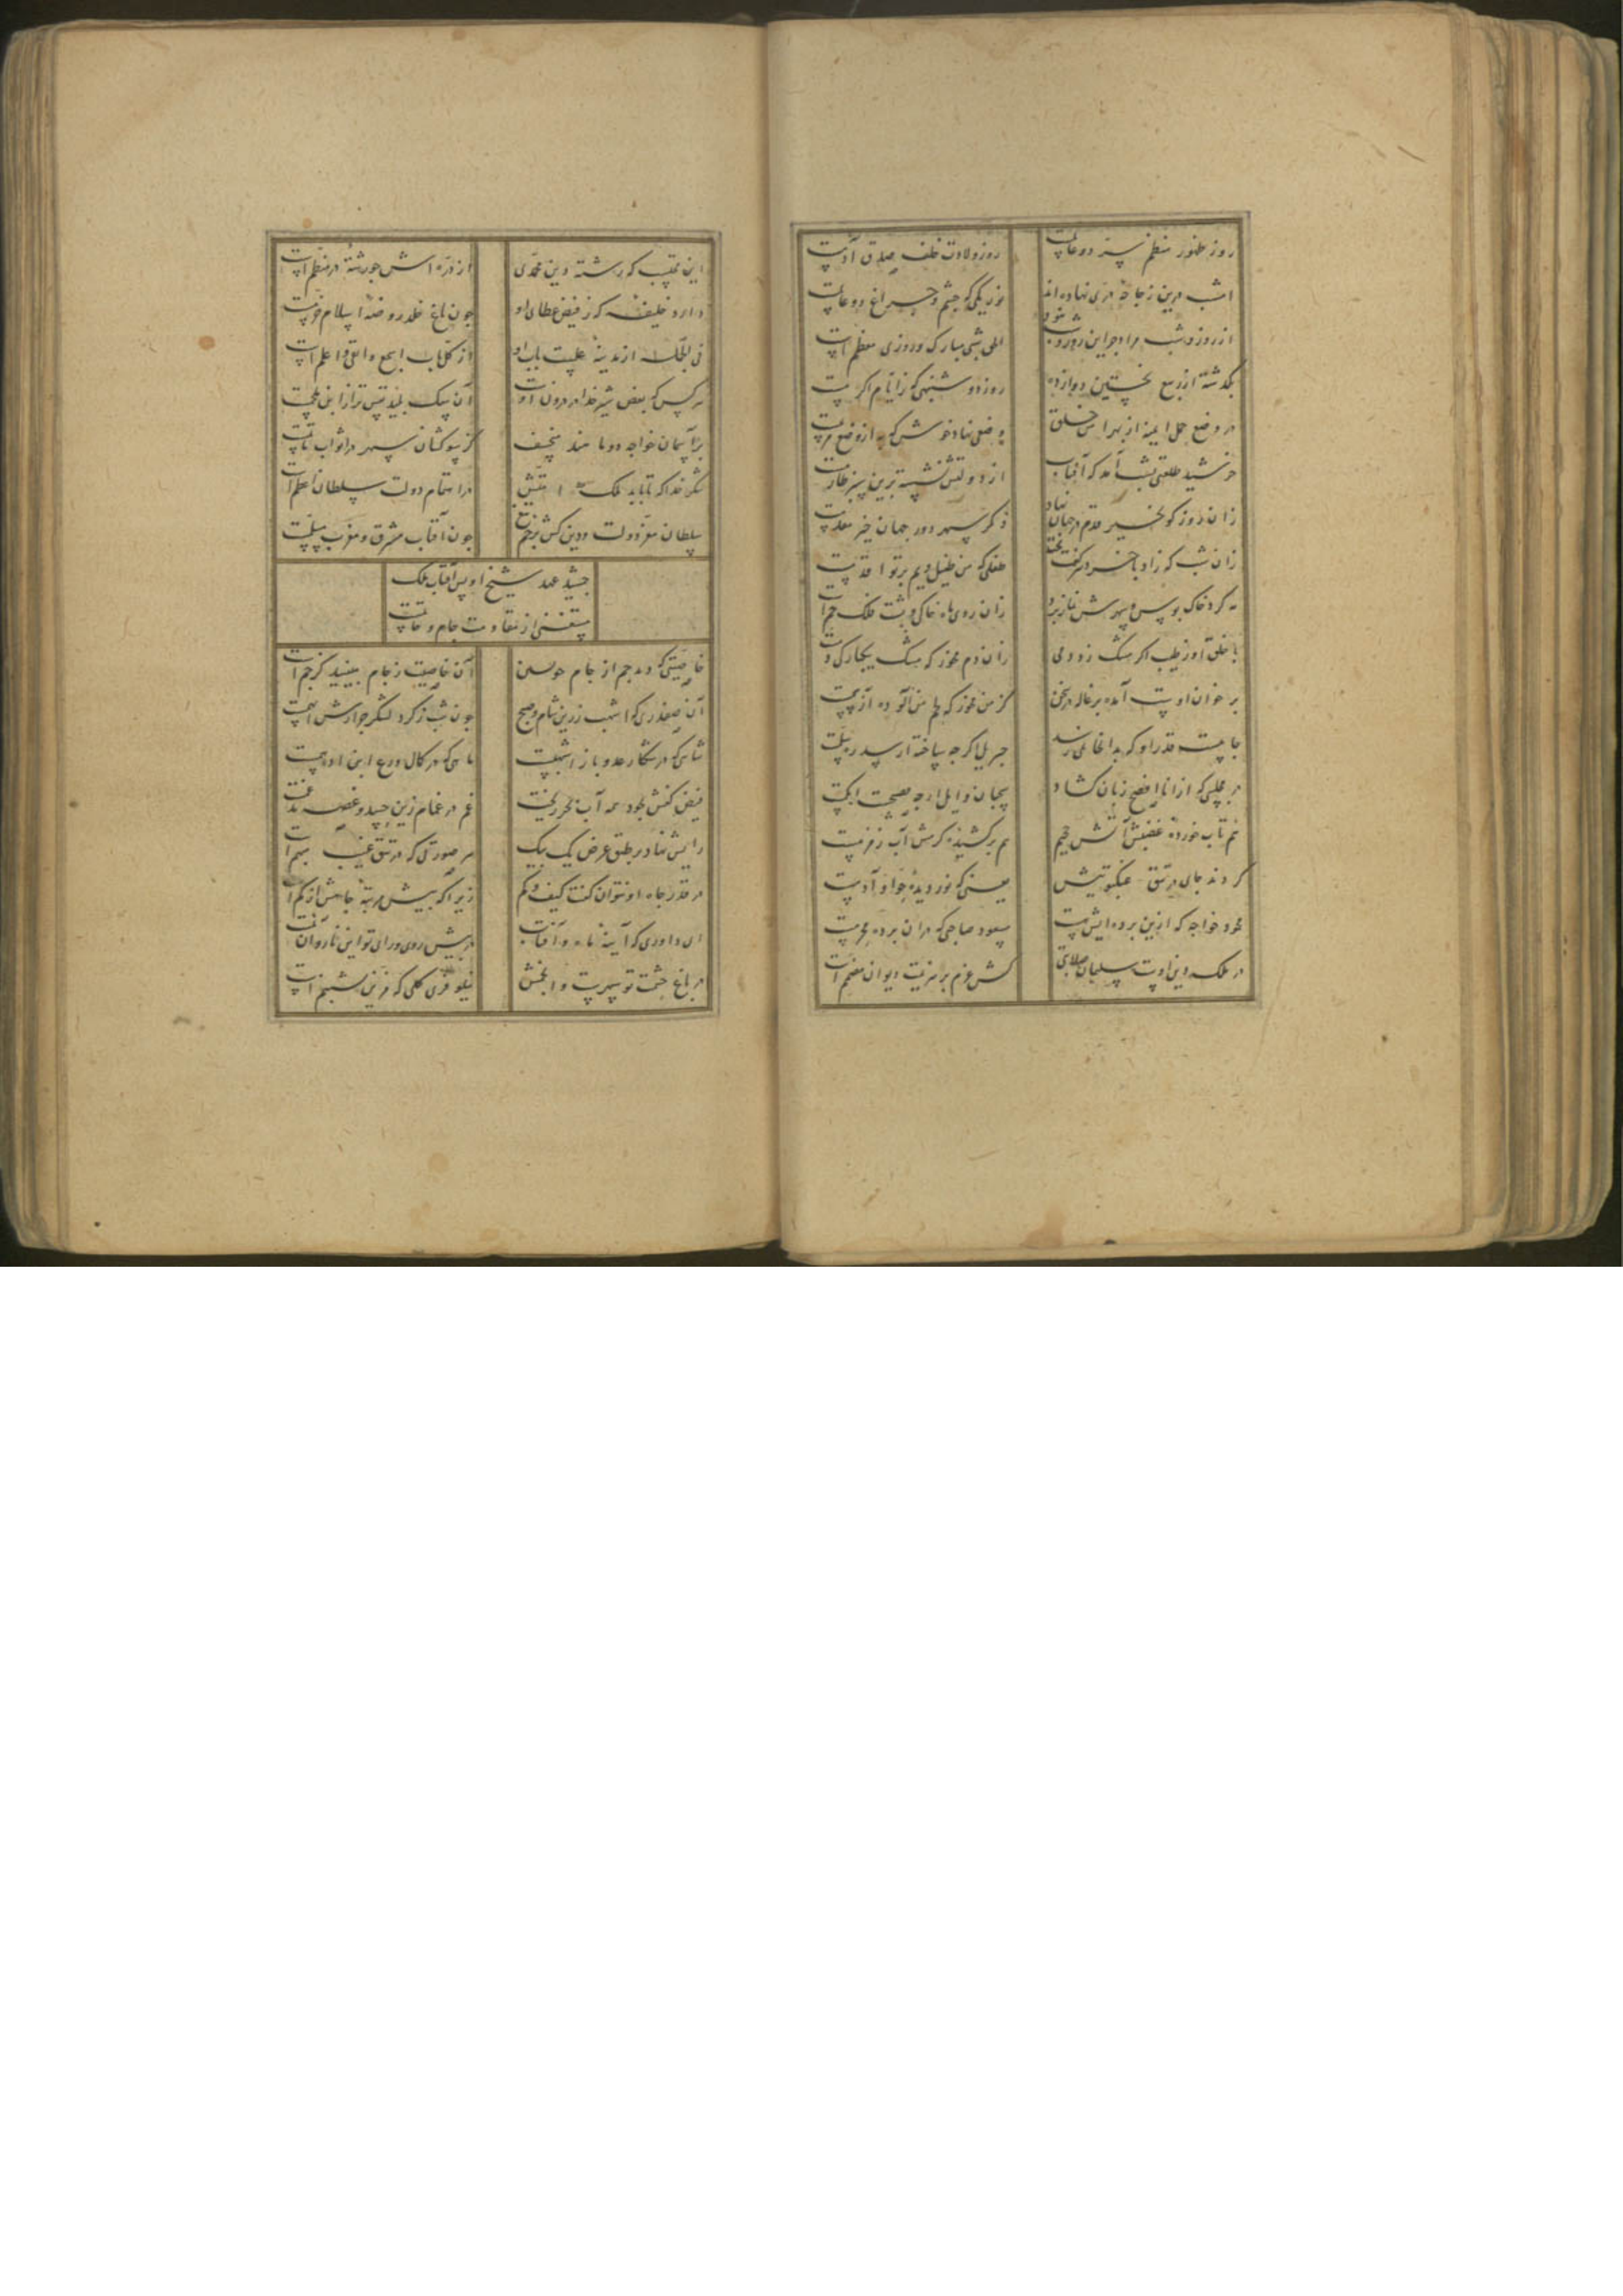 روز ظهور منظم سر دو عالمست
روز ولادت خلف صدق آدمست
امشب درین زجاجه دری نهاده‌اند
نوریکی که چشم و چراغ دو عالمست
از روز و شب مراد جز این روز و شب نبود
الحق شبی مبارک و روزی معظم است
بگذشته از ربیع نخستین دوازده
روز دوشنبهی که ز ایام اکرمست
در وضع حمل ایمنه از بهرا من خلق
وضعی نهاد خوش که از وضع مریمست
خرشید طلعتی بشب آمد که آفتاب
از دولتش نشسته برین سبز طارمست
زان روز کو بخیر قدم در جهان نهاد
ذکر سپهر دور جهان خیر مقدمست
زان شب که زاد با خرد پیر گفت بخت
طفلی که من طفیل ویم برتو اقدمست
مه کرد خاک بوس و سپهرش نماز برد
زان روی ماه خاکی و پشت فلک خم است
با خلق او ز طیب اگر مشک زد دمی
زان دم مخور که مشک بیکبارگی دمست
بر خوان اوست آمده بزغاله در سخن
کز من مخور که لحم من آلوده از سمست
جاییست قدر او که بدانجا نمی‌رسد
جبریل اگرچه ساخته از سدره سلمست
در مجلسی که از انا افصح زبان کشاد
سحبان وایل ارچه فصیحست ابکمست
نم تاب خورده غضبش آتش جحیم
هم برکشیده کرمش آب زمزمست
کردند جای در تتق عنکبوتیش
یعنی که نور دیده حوا و آدمست
محمود خواجه که ازین برده ایش بست
مسعود صاحبی که در آن برده محرمست
در ملک دین اوست سلیمان صلابتی
کش عزم بر هزیمت دیوان مصمم است
این محتسب که رشته دین محمدی
از دره اش چو رشته در منظم است
دارد خلیفه که ز فیض عطای او
چون باغ خلد روضه اسلام خرمست
فی الجمله از مدینه علمست باب او
از کل باب اسمع و اتقی و اعلم است
هر کس که بغض شیر خدا در درون اوست
آن سک پلید تنس تر از ابن ملجمست
بر آسمان خواجه دو ماه منخسف
کز سوکشان سپهر در اثواب ماتمست
شکر خدا که تا بابد ملک امتش
در اهتمام دولت سلطان اعظم است
سلطان معز دولت و دین کش نجم تیغ
چون آفتاب مشرق و مغرب مسلمست
جمشید عهد شیخ اویس آفتاب ملک
مستغنی از مقاومت جام و خاتمست
خاصیتی که دید جم از جام هوسین
آن خاصیت ز جام ببینید کر جم است
آن صفدری که اشهب زرین شام و صبح
چون شب ز کرد لشکر جرارش ادهمست
شاهی که در شکار عدو باز اشهبست
ماهی که در کمال ورع ابن ادهمست
فیض کفش بجود همه آب بحر ریخت
غم در غمام زین حسد و غصه منغمست
رایش نهاد بر طبق عرض یک بیک
هر صورتی که در تتق غیب مبهم است
در قدر جاه او نتوان گفت کیف و کم
زیرا که بیش مرتبه جاهش از کم است
ای داوری که آینه ماه و آفتاب
در پیش روی و رای تو این تار و آن تمست
در باغ حشمت تو سپهرست و انجمش
نیلوفری کلی که مزین بشبنم است